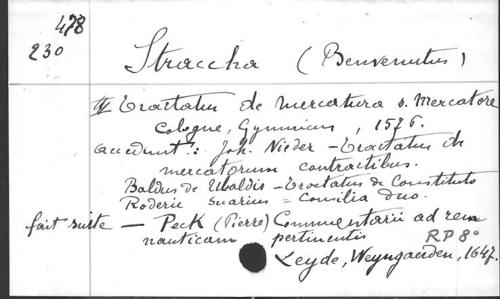 478
230
Straccha (Benvenutus)
Tractatus de mercatura s. Mercatore
Cologne, Gymnicus, 1576.
accedunt: Joh. Nieder - Tractatus de
mercatorum contractibus.
Baldus de Ubaldis - Tractatus de Constituto
Roderic Suarius = Consilia duo.
fait suite - Peck (Pierre) Commentarii ad rem
nauticam pertinentis
RP 8°
Leyde, Weyngaerden, 1647.